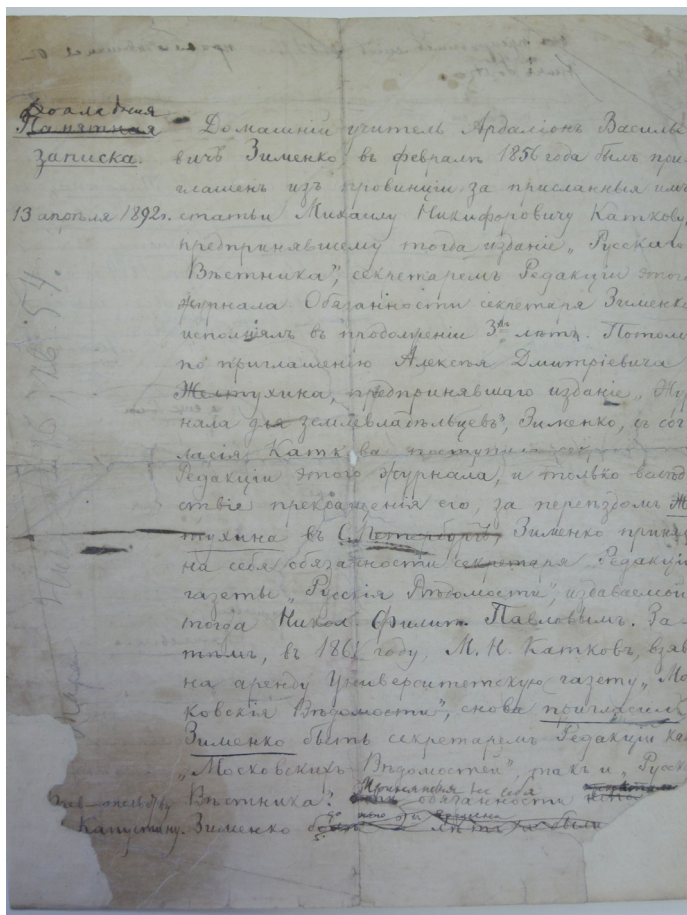 Докладная
Памятная
записка.
13 апрѣля 1892г.
Домашній учитель Ардаліонъ Василье
вичъ Зименко, въ февралѣ 1856 года былъ при
глашенъ изъ провинціи за присланныя имъ
статьи Михаилу Никифоровичу Каткову,
предпринявшему тогда изданіе „Русскаго
Вѣстника", секретаремъ Редакціи этого
журнала. Обязанности секретаря Зименко
исполнялъ въ продолженіи 3хъ лѣтъ. Потомъ
по приглашенію Алексѣя Дмитріевича
Желтухина, предпринявшаго изданіе „Жур
нала для землевладѣльцевъ", Зименко, съ сог
ласія Каткова поступилъ
Редакціи этого журнала, и только вслѣд
ствіе прекращенія его, за переѣздомъ Же
тухина въ С. Петербургъ, Зименко приня
на себя обязанности секретаря Редакціи
газеты „Русскія Вѣдомости", издаваемой
тогда Никол. Филип. Павловымъ. За-
тѣмъ, въ 186 году, М. Н. Катковъ, взяв
на аренду Университетскую газету „Мо
ковскія Вѣдомости", снова пригласилъ
Зименко быть секретаремъ Редакціи ка
„Московскихъ Вѣдомостей", такъ и „Русск
Вѣстника". Принявъ на себя
обязанности
Капустину. Зименко